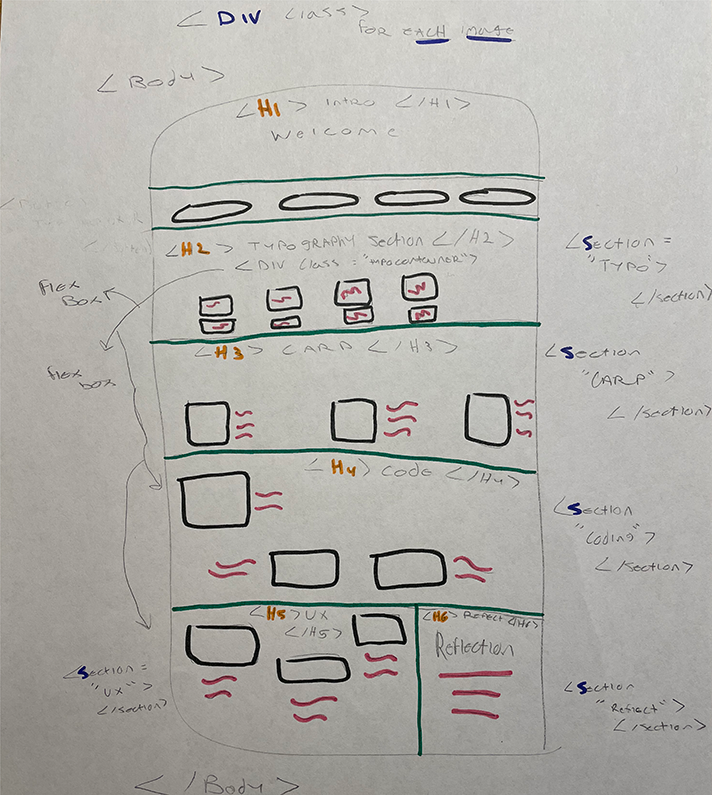 < DIV class>
FOR EACH image
< Body >
<H1> intro </H1>
Welcome
<H2> TYPOGRAPHY Section </H2>
<DIV class = "typocontainer">
<Section =
"TYPO">
</section>
flex
BOX
flex
box
<H3> CARP </H3>
<Section
"CARP" >
</section>
<H4> Code </H4>
<Section
"Coding">
</section>
<H5> UX
</H5>
<H6> Reflect </H6>
Reflection
<Section =
"UX">
</section>
<Section
"Reflect">
</section>
</Body>